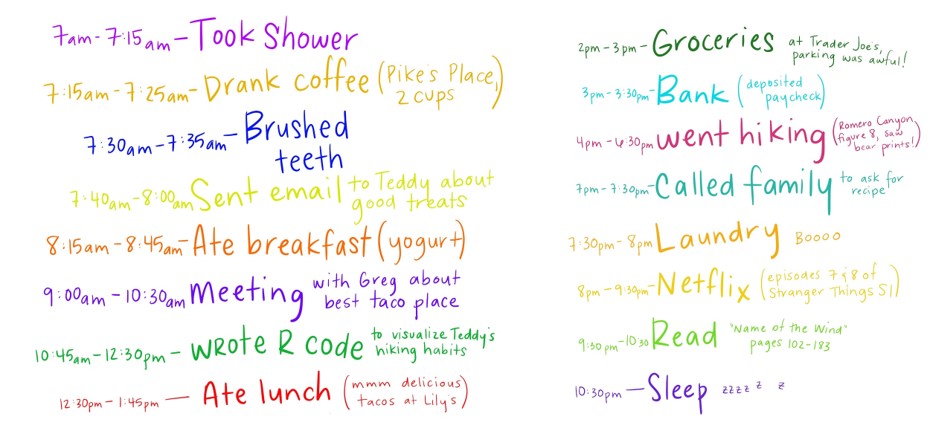 7am-7:15am-Took Shower
7:15am-7:25am-Drank coffee (Pikes Place,
2 cups)
7:30am-7:35am-Brushed
teeth
7:40am-8:00am Sent email to Teddy about
good treats
8:15am-8:45am-Ate breakfast (yogurt)
9:00am-10:30am Meeting with Greg about
best taco place
10:45am-12:30pm-wrote R code to visualize Teddy's
hiking habits
12:30pm-1:45pm-Ate lunch (mmm delicious
tacos at Lily's)
2pm-3pm-Groceries at Trader Joes,
parking was awful!
3pm-3:30pm-Bank (deposited
paycheck)
4pm-6:30pm went hiking (Romero Canyon,
figure 8, saw
bear prints!)
7pm-7:30pm-Called family to ask for
recipe
7:30pm-8pm Laundry Boooo
8pm-9:30pm-Netflix (episodes 7 & 8 of
Stranger Things S1)
9:30pm-10:30 Read "Name of the Wind"
pages 102-183
10:30pm-Sleep zzzz z z